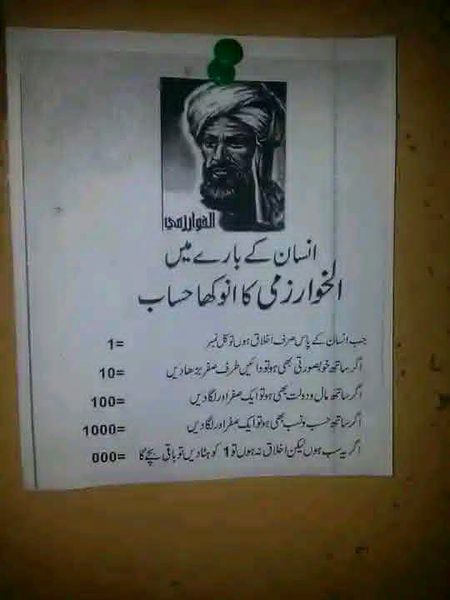 الخوارزمی
انسان کے بارے میں
الخوارزمی کا انوکھا حساب
جب انسان کے پاس صرف اخلاق ہوں تو کل نمبر =1
اگر ساتھ خوبصورتی بھی ہو تو دائیں طرف صفر بڑھا دیں =10
اگر ساتھ مال و دولت بھی ہو تو ایک صفر اور لگا دیں =100
اگر ساتھ حسب و نسب بھی ہو تو ایک صفر اور لگا دیں =1000
اگر یہ سب ہوں لیکن اخلاق نہ ہوں تو 1 کو ہٹا دیں تو باقی بچے گا =000